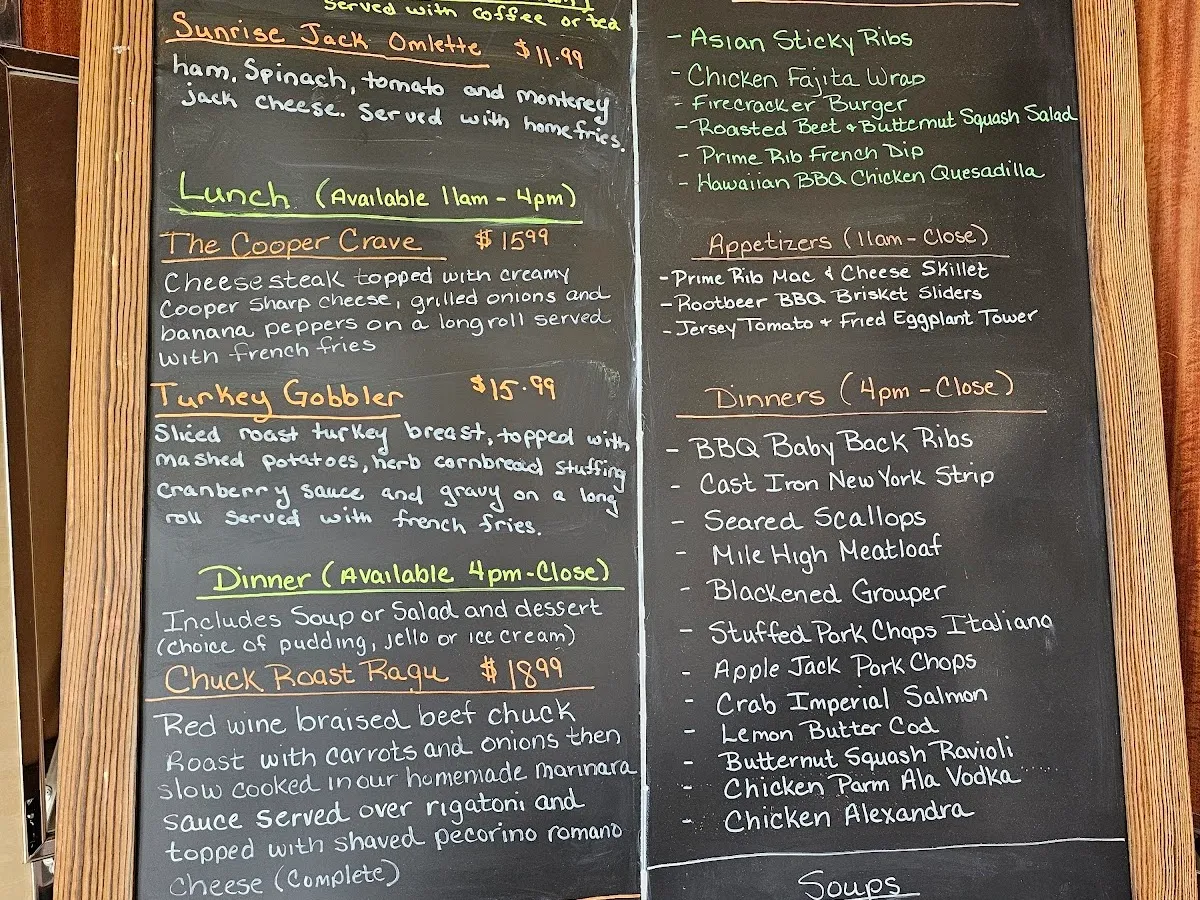 Served with coffee or tea
Sunrise Jack Omlette $11.99
ham, Spinach, tomato and monterey
jack cheese. Served with homefries.
Lunch (Available 11am - 4pm)
The Cooper Crave $15 99
Cheesesteak topped with creamy
Cooper sharp cheese, grilled onions and
banana peppers on a long roll served
with french fries
Turkey Gobbler $15.99
Sliced roast turkey breast, topped with
mashed potatoes, herb cornbread stuffing
cranberry sauce and gravy on a long
roll served with french fries.
Dinner (Available 4pm-Close)
Includes Soup or Salad and dessert
(choice of pudding, jello or ice cream)
Chuck Roast Ragu $18 99
Red wine braised beef chuck
Roast with carrots and onions then
slow cooked in our homemade marinara
sauce served over rigatoni and
topped with shaved pecorino romano
cheese (Complete)
- Asian Sticky Ribs
- Chicken Fajita Wrap
- Firecracker Burger
- Roasted Beet + Butternut Squash Salad
- Prime Rib French Dip
- Hawaiian BBQ Chicken Quesadilla
Appetizers (11am - Close)
- Prime Rib Mac & Cheese Skillet
- Rootbeer BBQ Brisket Sliders
- Jersey Tomato + Fried Eggplant Tower
Dinners (4pm - Close)
- BBQ Baby Back Ribs
- Cast Iron New York Strip
- Seared Scallops
- Mile High Meatloaf
- Blackened Grouper
- Stuffed Pork Chops Italiano
- Apple Jack Pork Chops
- Crab Imperial Salmon
- Lemon Butter Cod
- Butternut Squash Ravioli
- Chicken Parm Ala Vodka
- Chicken Alexandra
Soups